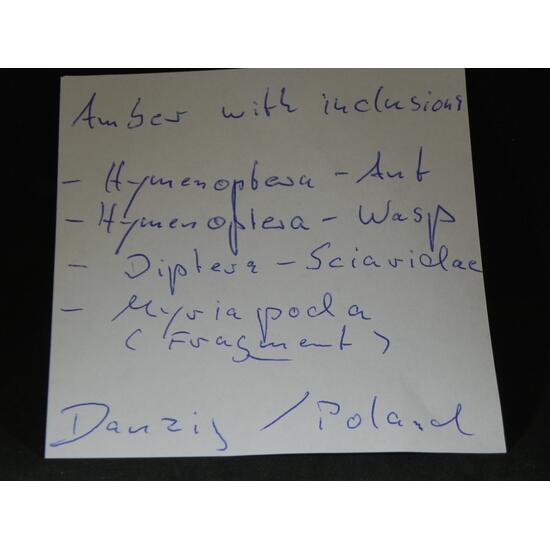 Amber with inclusions
- Hymenoptera - Ant
- Hymenoptera - Wasp
- Diptera - Sciaridae
- Myriapoda
(Fragment)
Danzig / Poland